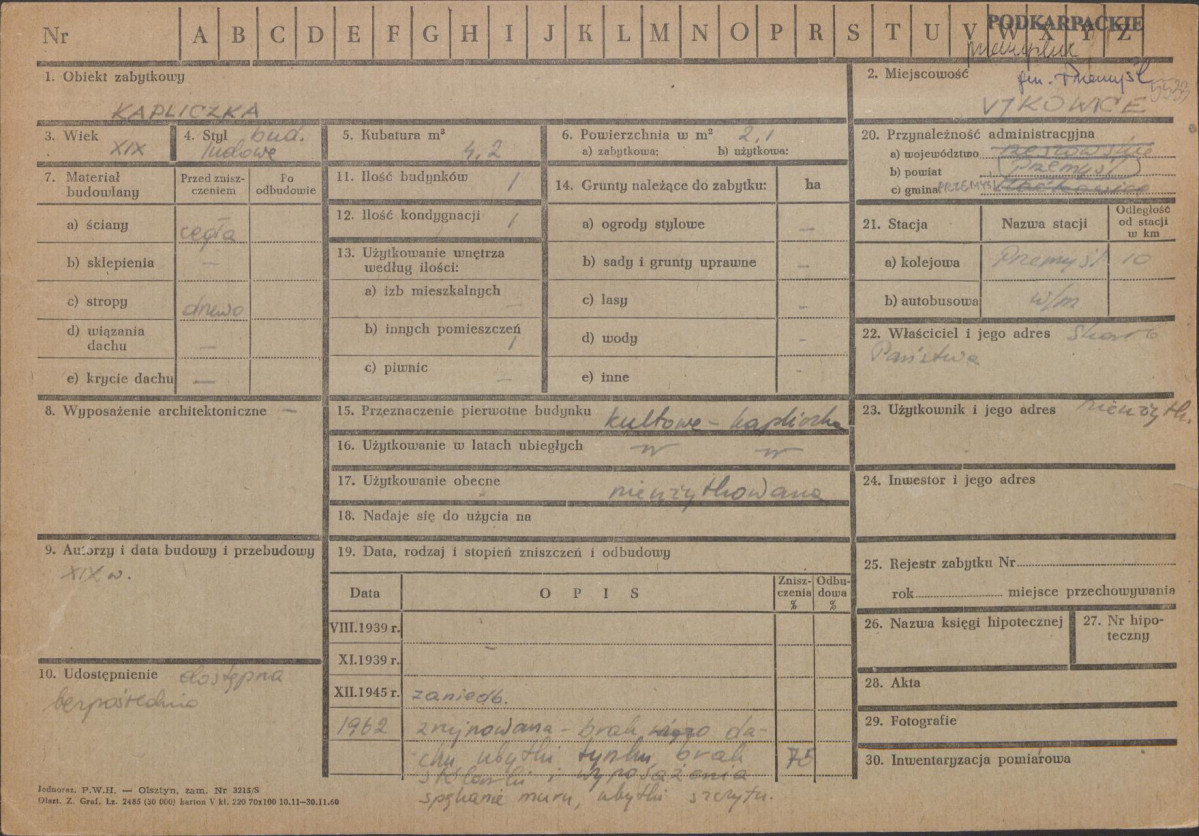 Nr A B C D E F G H I J K L M N O P R S T U V W X Y Z
PODKARPACKIE
gm. Przemyśl
1. Obiekt zabytkowy
KAPLICZKA
2. Miejscowość
3. Wiek XIX
4. Styl bud. ludowe
5. Kubatura m³ 4,2
6. Powierzchnia w m² 2,1
a) zabytkowa: b) użytkowa:
7. Materiał budowlany
Przed zniszczeniem
Po odbudowie
a) ściany cegła
b) sklepienia —
c) stropy drewo
d) wiązania dachu —
e) krycie dachu —
8. Wyposażenie architektoniczne —
9. Autorzy i data budowy i przebudowy
XIX w.
10. Udostępnienie dostępna
bezpośrednio
11. Ilość budynków 1
12. Ilość kondygnacji 1
13. Użytkowanie wnętrza według ilości:
a) izb mieszkalnych —
b) innych pomieszczeń 1
c) piwnic —
14. Grunty należące do zabytku: ha
a) ogrody stylowe —
b) sady i grunty uprawne —
c) lasy —
d) wody —
e) inne —
15. Przeznaczenie pierwotne budynku kultowe - kapliczka
16. Użytkowanie w latach ubiegłych
17. Użytkowanie obecne nieużytkowana
18. Nadaje się do użycia na
19. Data, rodzaj i stopień zniszczeń i odbudowy
Data OPIS Zniszczenia % Odbudowa %
VIII.1939 r.
XI.1939 r. —
XII.1945 r. zaniedb.
1962 zrujnowana - brak da-
chu, ubytki tynku, brak 75
i wyposażenia
spękanie muru, ubytki szczytu.
20. Przynależność administracyjna
a) województwo
b) powiat Przemyśl
c) gmina PRZEMYŚL
21. Stacja Nazwa stacji Odległość od stacji w km
a) kolejowa Przemyśl 10
b) autobusowa w/m
22. Właściciel i jego adres Skarb
Państwa
23. Użytkownik i jego adres nieużytk.
24. Inwestor i jego adres
25. Rejestr zabytku Nr
rok miejsce przechowywania
26. Nazwa księgi hipotecznej
27. Nr hipoteczny
28. Akta
29. Fotografie
30. Inwentaryzacja pomiarowa
Jednoraz. P.W.H. — Olsztyn, zam. Nr 3215/S
Olszt. Z. Graf. Lz. 2485 (30 000) karton V kl. 220 70x100 10.11—30.11.60